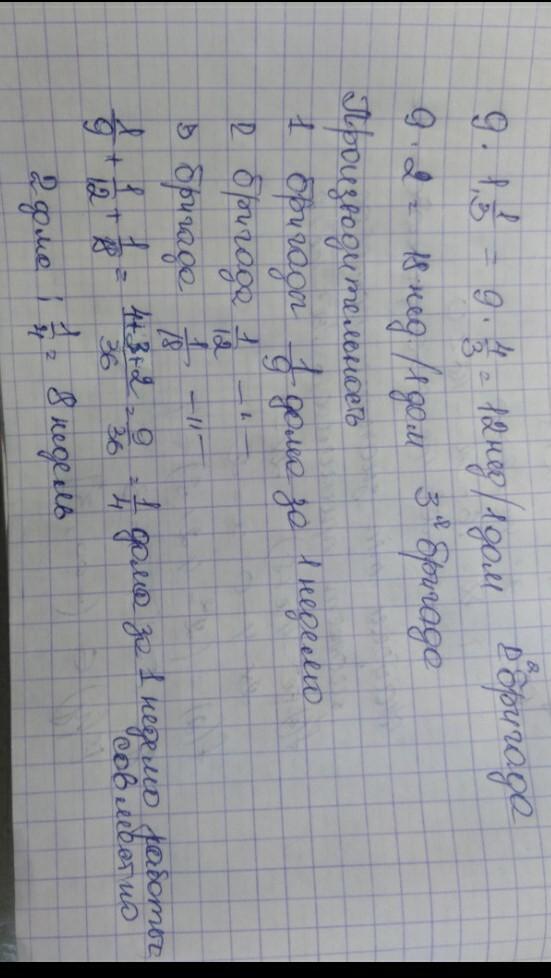 9 · 1 1/3 = 9 · 4/3 = 12 нед/1 дом 2я бригада
9 · 2 = 18 нед./1 дом 3я бригада
Производительность
1 бригады 1/9 дома за 1 неделю
2 бригада 1/12 —"—
3 бригада 1/18 —"—
1/9 + 1/12 + 1/18 = 4+3+2/36 = 9/36 = 1/4 дома за 1 неделю работы совместно
2 дома : 1/4 = 8 недель